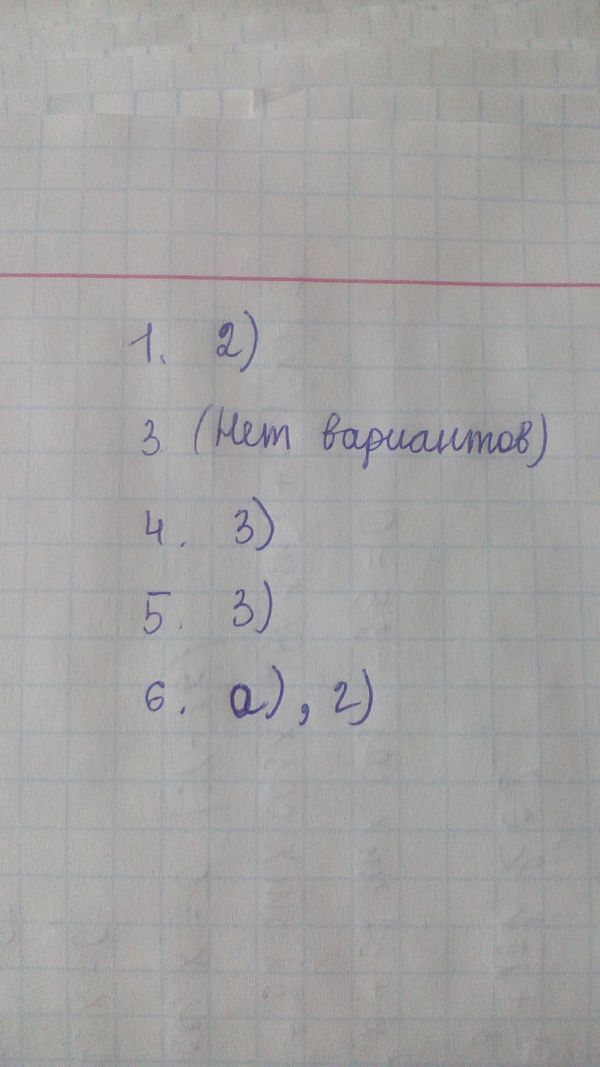 1. 2)
3 (Нет вариантов)
4. 3)
5. 3)
6. а), г)